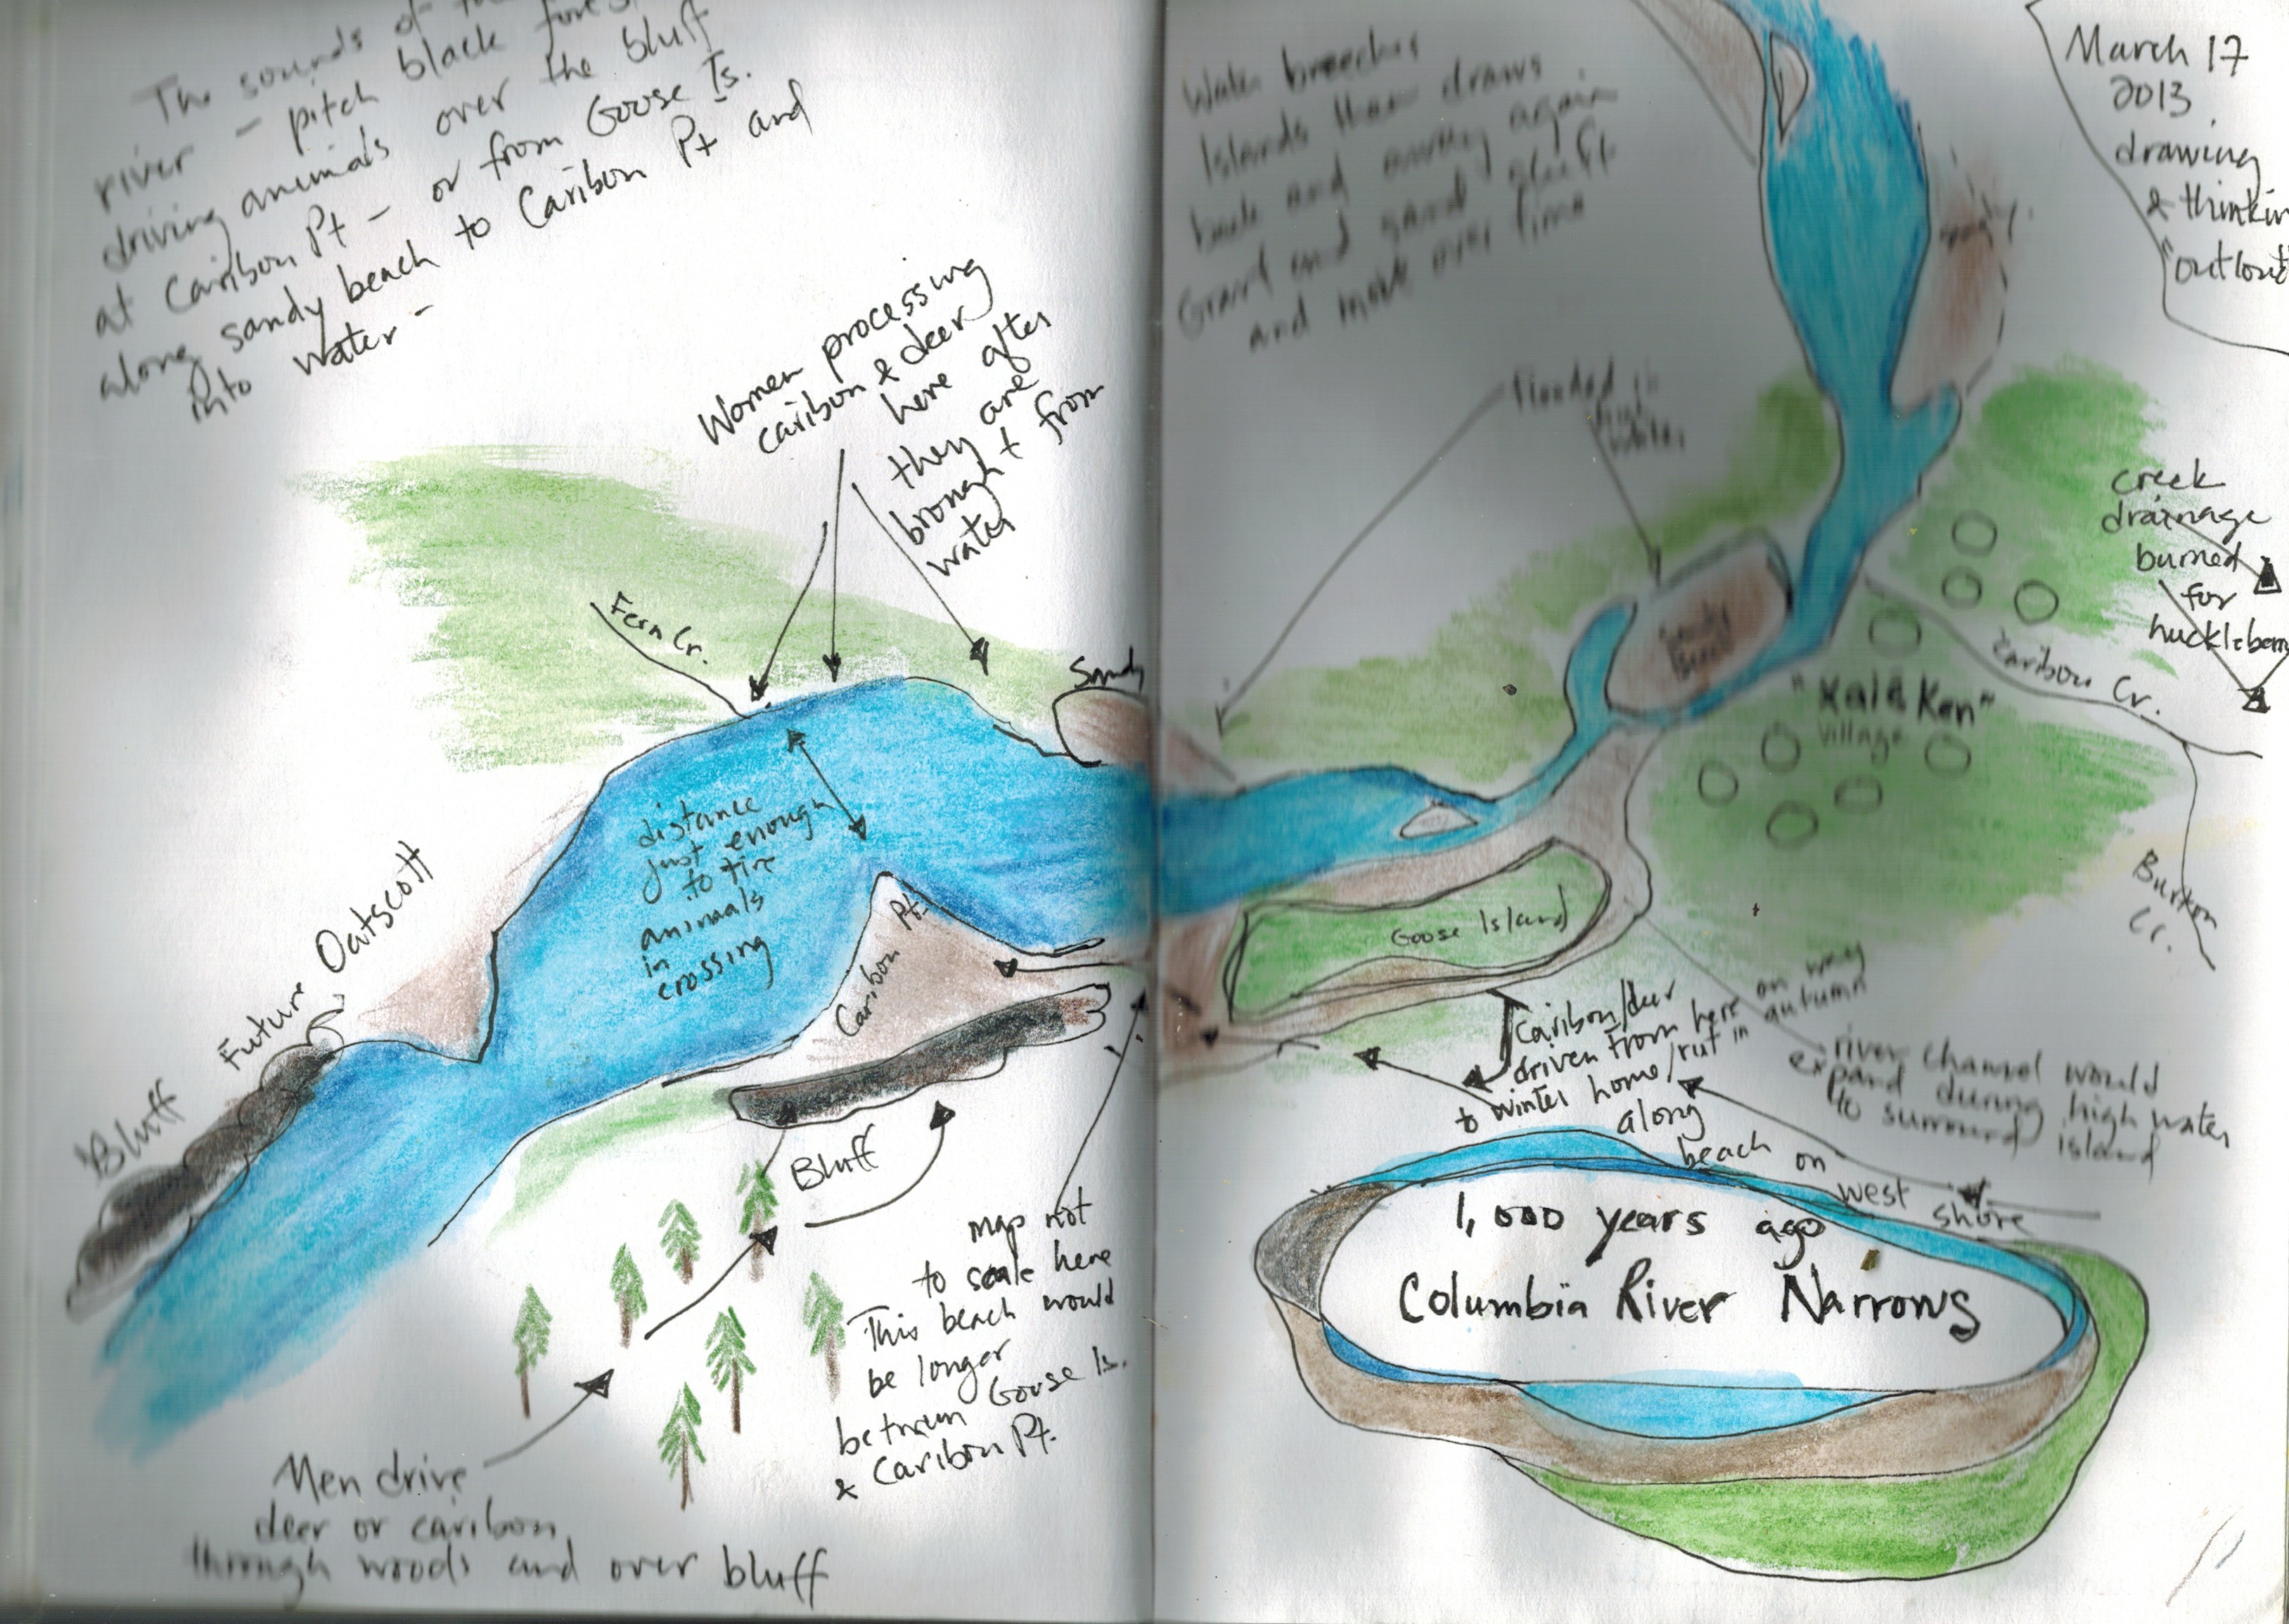 The sounds of the
river - pitch black forest
driving animals over the bluff
at Caribou Pt - or from Goose Is.
along sandy beach to Caribou Pt and
into water -
Women processing
caribou & deer
here after
they are
brought from
water
Fern Cr.
Sandy
distance
just enough
to tire
animals
in
crossing
Future Oatscott
Bluff
Caribou Pt.
Bluff
map not
to scale here
This beach would
be longer
between Goose Is.
& Caribou Pt.
Men drive
deer or caribou
through woods and over bluff
Water breeches
Islands then draws
back and away again
Gravel and sand shift
and move over time
March 17
2013
drawing
& thinkin
outloud
Sandy
flooded in
high
water
creek
drainage
burned
for
huckleberry
Sandy
Caribou Cr.
"Xaiē Ken"
village
Burton
Cr.
Goose Island
Caribou/deer
driven from here on way
to winter home/rut in autumn
along
beach on
west shore
river channel would
expand during high water
to surround island
1,000 years ago
Columbia River Narrows